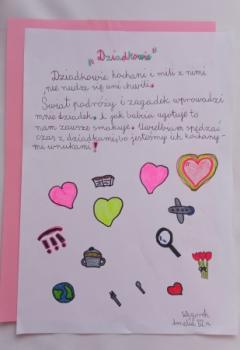 "Dziadkowie"
Dziadkowie kochani i mili z nimi
nie nudzę się ani chwili.
Świat podróży i zagadek wprowadzi
mnie dziadek. A jak babcia ugotuje to
nam zawsze smakuje. Uwielbiam spędzać
czas z dziadkami, bo jesteśmy ich kochany-
mi wnukami!
Amelia VI a